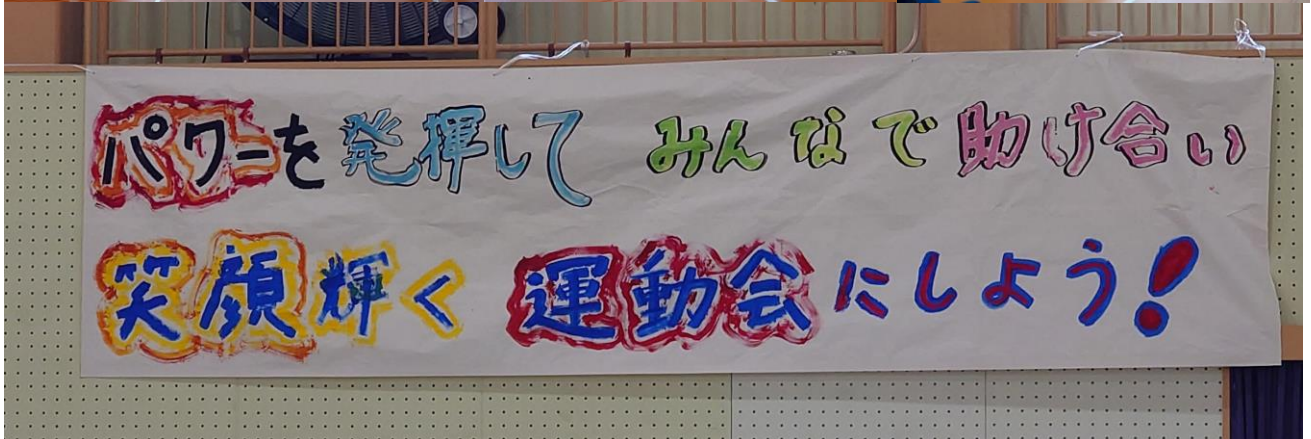 パワーを発揮して みんなで助け合い
笑顔輝く 運動会にしよう!